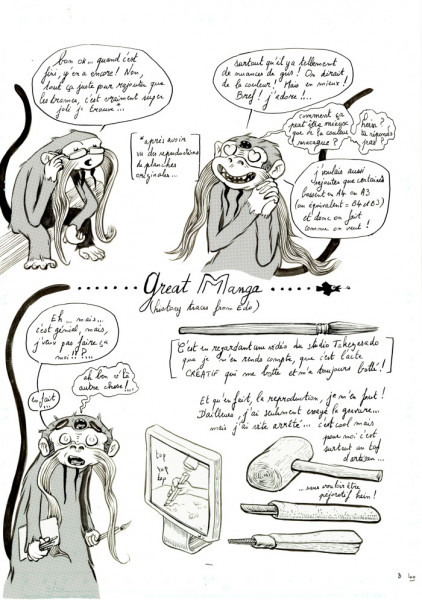 bon ok... quand c'est
fini, y'en a encore! Non,
tout ça juste pour rajouter que
les trames, c'est vraiment super
joli je trouve*...
surtout qu'il y a tellement
de nuances de gris! On dirait
de la couleur! Mais en mieux!
Bref! j'adore!!..
comment ça
peut être mieux
que de la couleur
masque?
hein?
tu réponds
pas!
[*après avoir
vu des reproductions
de planches
originales...
j'voulais aussi
rajouter que certains
bossent en A4 ou A3
(ou équivalent = B4 et B3)
et donc on fait
comme on veut!
Great Manga
(history traces from Edo)
Eh... mais...
c'est génial, mais,
j'vais pas faire ça
moi!!?...
ah bon v'là
autre chose!...
en fait...
[C'est en regardant une vidéo du studio Takezasado
que je m'en rends compte, que c'est l'acte
CREATIF qui me botte et m'a toujours botté!]
Et qu'en fait, la reproduction, je m'en fout!
D'ailleurs, j'ai seulement essayé la gravure...
mais j'ai vite arrêté... c'est cool mais
pour moi c'est
surtout un taf
d'artisan...
...sans vouloir être
péjoratif hein!
top
top
top
8